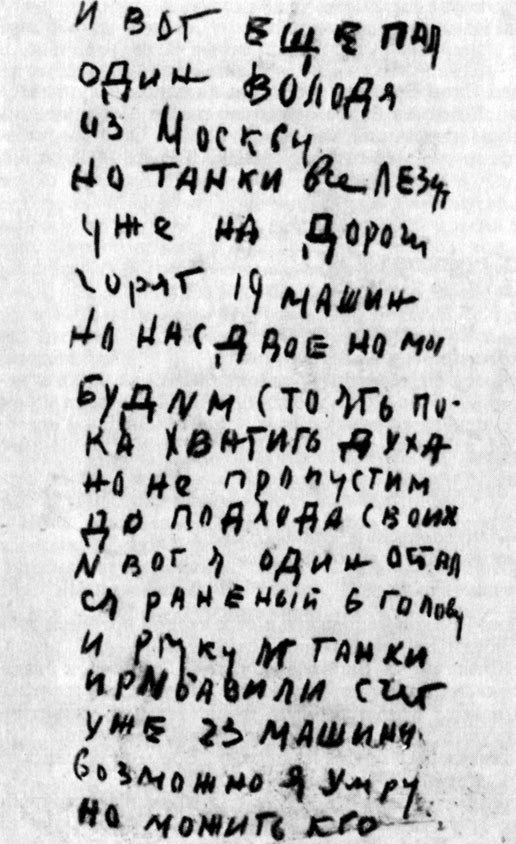 И ВОТ ЕЩЕ ПАЛ
ОДИН ВОЛОДЯ
ИЗ МОСКВЫ
НО ТАНКИ все ЛЕЗУТ
УЖЕ НА ДОРОГИ
горят 19 МАШИН
НО НАС ДВОЕ НО МЫ
БУДИМ СТОЯТЬ ПО-
КА ХВАТИТЬ ДУХА
НО НЕ ПРОПУСТИМ
ДО ПОДХОДА СВОИХ
И ВОТ Я ОДИН ОСТАЛ
СЯ РАНЕНЫЙ В ГОЛОВУ
И РУКУ И ТАНКИ
ПРИБАВИЛИ СЧЕТ
УЖЕ 23 МАШИНЫ
ВОЗМОЖНО Я УМРУ
НО МОЖИТЬ КТО